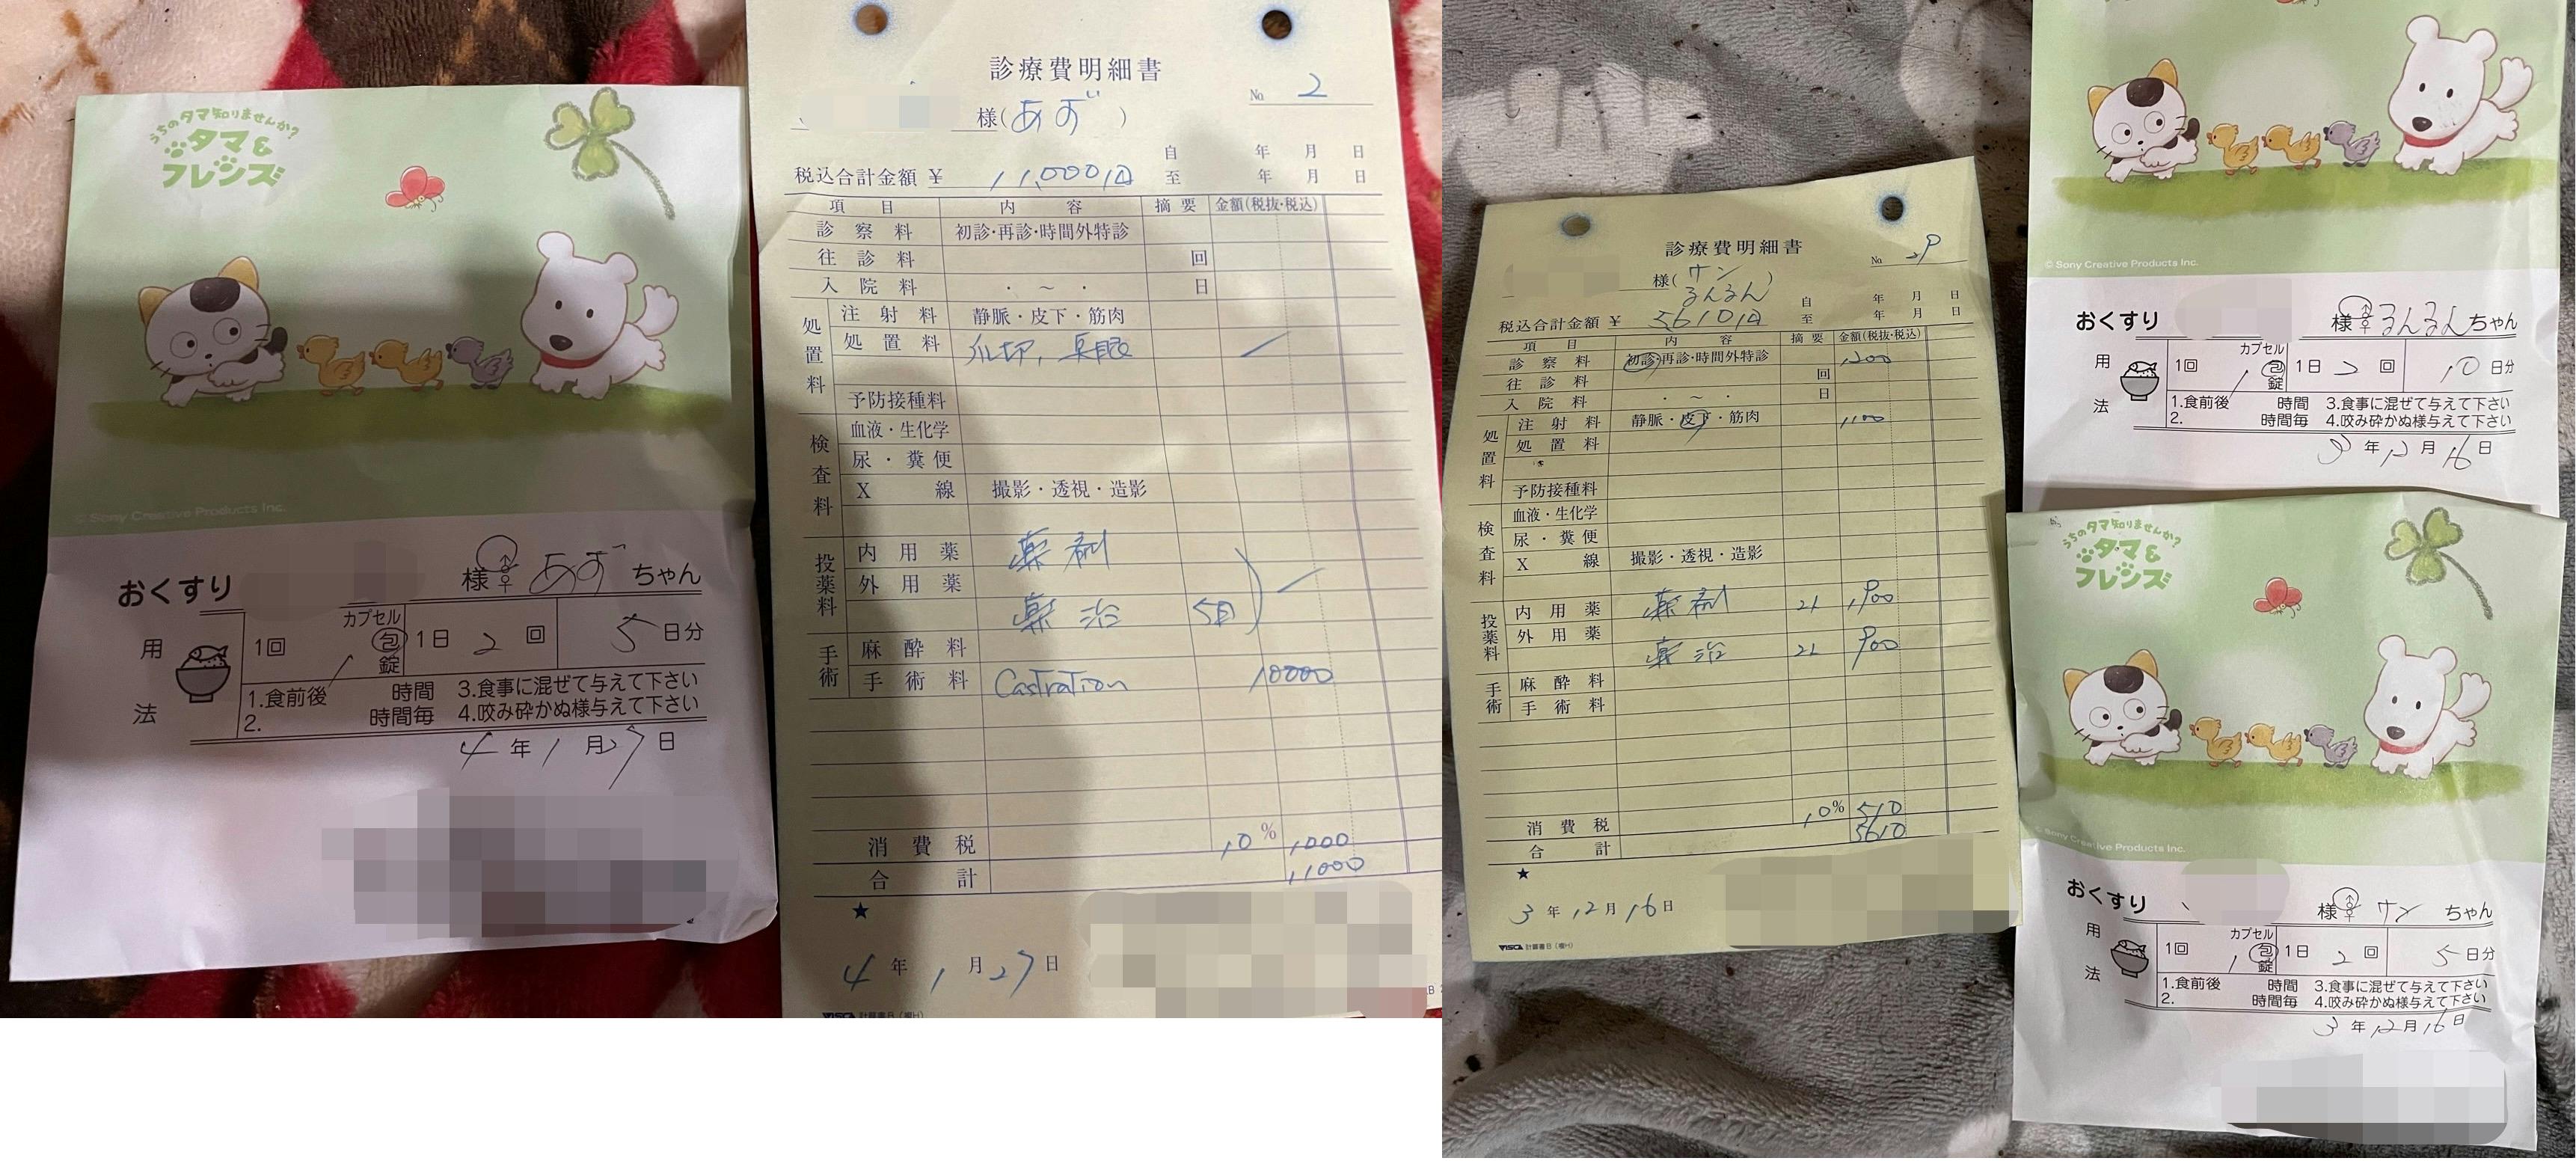 うちのタマ知りませんか?
タマ&
フレンズ
© Sony Creative Products Inc.
おくすり 様 ♂♀ あず ちゃん
用法
1回 カプセル 包 錠 1日 2 回 5 日分
1.食前後 時間 3.食事に混ぜて与えて下さい
2. 時間毎 4.咬み砕かぬ様与えて下さい
4 年 1 月 27 日
診療費明細書
No. 2
様(あず)
税込合計金額 ¥ 11,000円
自 年 月 日
至 年 月 日
項目 内容 摘要 金額(税抜・税込)
診察料 初診・再診・時間外特診
往診料 回
入院料 ・ ~ ・ 日
処置料
注射料 静脈・皮下・筋肉
処置料 爪切,
予防接種料
検査料
血液・生化学
尿・糞便
X線 撮影・透視・造影
投薬料
内用薬 薬剤
外用薬
薬治 5日
手術
麻酔料
手術料 Castration 10000
消費税 10% 1000
合計 11000
★
4 年 1 月 27 日
VISCA 計算書B(横H)
診療費明細書
No. 29
様(サン
るんるん)
税込合計金額 ¥ 5610円
自 年 月 日
至 年 月 日
項目 内容 摘要 金額(税抜・税込)
診察料 初診・再診・時間外特診 1200
往診料 回
入院料 ・ ~ ・ 日
処置料
注射料 静脈・皮下・筋肉 1100
処置料
予防接種料
検査料
血液・生化学
尿・糞便
X線 撮影・透視・造影
投薬料
内用薬 薬剤 21 1900
外用薬
薬治 21 900
手術
麻酔料
手術料
消費税 10% 510
合計 5610
★
3 年 12 月 16 日
VISCA 計算書B(横H)
© Sony Creative Products Inc.
おくすり 様 ♂♀ るんるん ちゃん
用法
1回 1 カプセル 包 錠 1日 2 回 10 日分
1.食前後 時間 3.食事に混ぜて与えて下さい
2. 時間毎 4.咬み砕かぬ様与えて下さい
3 年 12 月 16 日
うちのタマ知りませんか?
タマ&
フレンズ
© Sony Creative Products Inc.
おくすり 様 ♂♀ サン ちゃん
用法
1回 1 カプセル 包 錠 1日 2 回 5 日分
1.食前後 時間 3.食事に混ぜて与えて下さい
2. 時間毎 4.咬み砕かぬ様与えて下さい
3 年 12 月 16 日